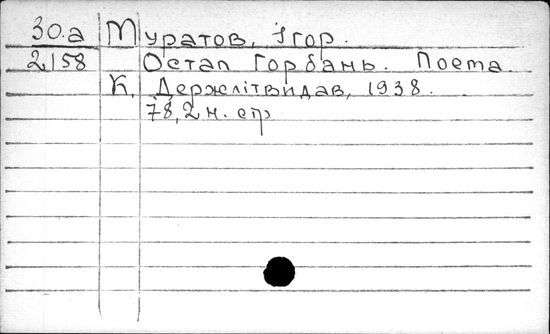 30.а Муратов, Ігор.
2158 Остап Горбань. Поема.
К. Держлітвидав, 1938.
78,2 н. стр